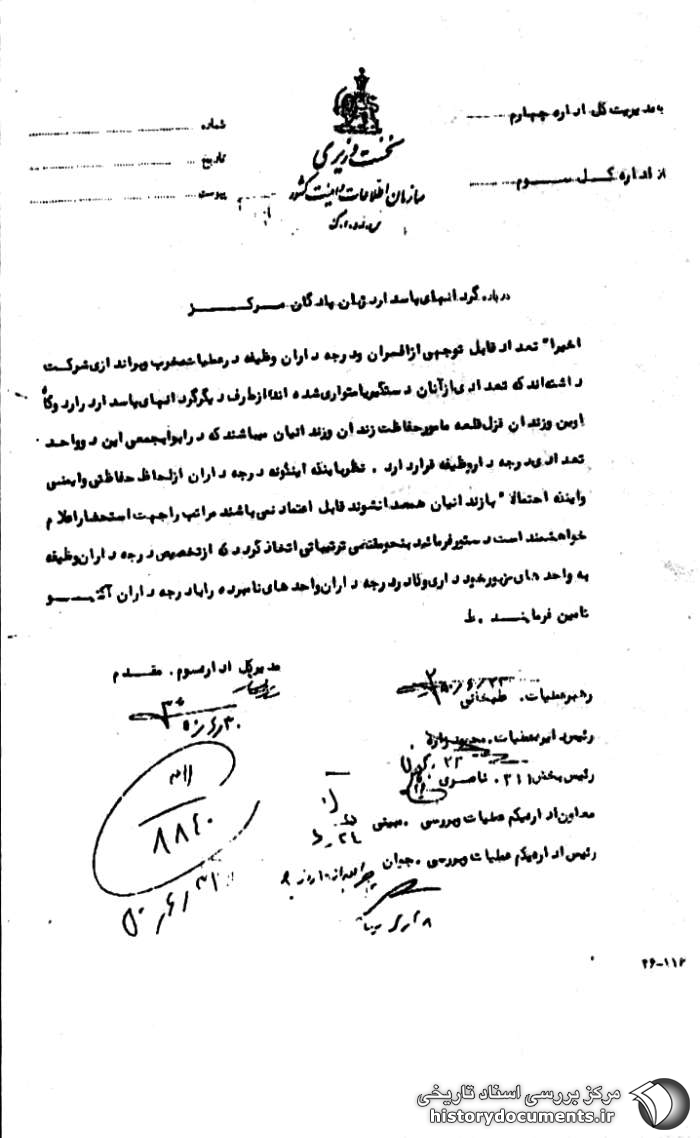 به مدیریت کل اداره چهارم
از اداره کل سوم
نخست وزیری
سازمان اطلاعات و امنیت کشور
س.ا.و.ا.ک
شماره
تاریخ
پیوست
درباره گردانهای پاسدار زندان پادگان مرکز
اخیرا" تعداد قابل توجهی از افسران و درجه داران وظیفه در عملیات مخرب و براندازی شرکت
داشته‌اند که تعدادی از آنان دستگیر یا متواری شده اند از طرف دیگر گردانهای پاسدار در اردوگاه
اوین و زندان قزل قلعه مامور حفاظت زندان و زندانیان میباشند که در ابوابجمعی این دو واحد
تعدادی درجه دار وظیفه قرار دارد . نظر باینکه اینگونه درجه داران از لحاظ حفاظتی و ایمنی
و اینکه احتمالا" با زندانیان همصدا نشوند قابل اعتماد نمی باشند مراتب را جهت استحضار اعلام
خواهشمند است دستور فرمائید بنحو مقتضی ترتیباتی اتخاذ گردد که از تخصیص درجه داران وظیفه
به واحد های مزبور خودداری و کادر درجه داران واحد های نامبرده را با درجه داران اکتیو
تامین فرمایند . ط
مدیر کل اداره سوم . مقدم
۵۰/۶/۳۰
رهبر عملیات . طبخانی
۵۰/۶/۲۳
رئیس دایره عملیات .
رئیس بخش ۳۱۱ . ناصری
معاون اداره یکم عملیات و بررسی . مبینی
رئیس اداره یکم عملیات و بررسی . جوان
۸۸۴۰
۵۰/۶/۳۱
۲۶-۱۱۶
مرکز بررسی اسناد تاریخی
historydocuments.ir